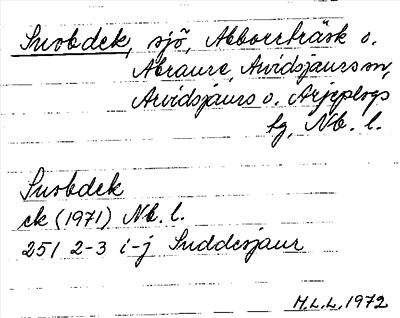 Snobdek, sjö, Abborrträsk o.
Abraure, Arvidsjaurs sn,
Arvidsjaurs o. Arjeplogs
lg, Nb. l.
Snobdek
ek (1971) Nb. l.
25I 2-3 i-j Suddesjaur
M.L.L. 1972